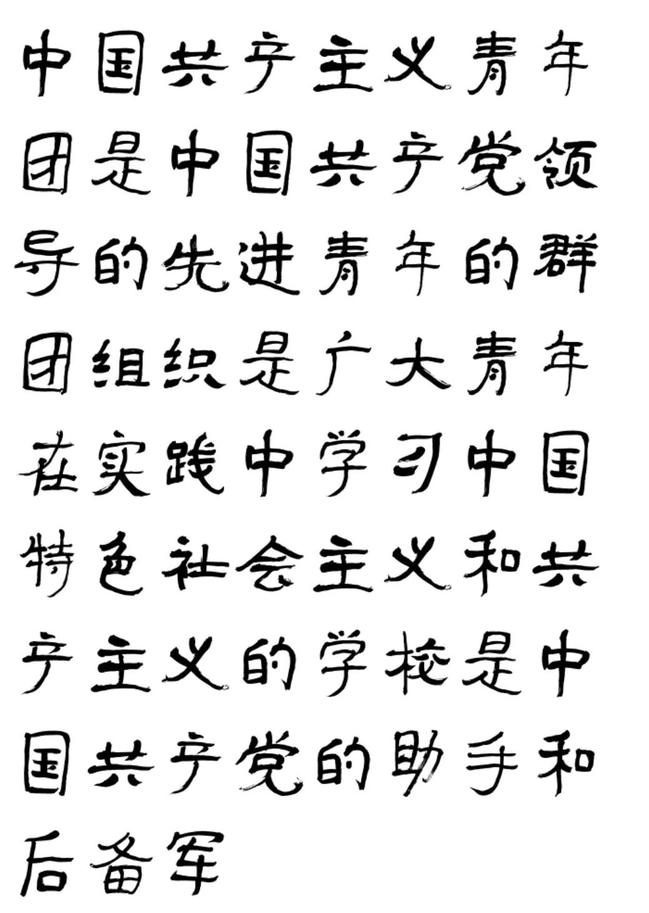 中国共产主义青年
团是中国共产党领
导的先进青年的群
团组织是广大青年
在实践中学习中国
特色社会主义和共
产主义的学校是中
国共产党的助手和
后备军